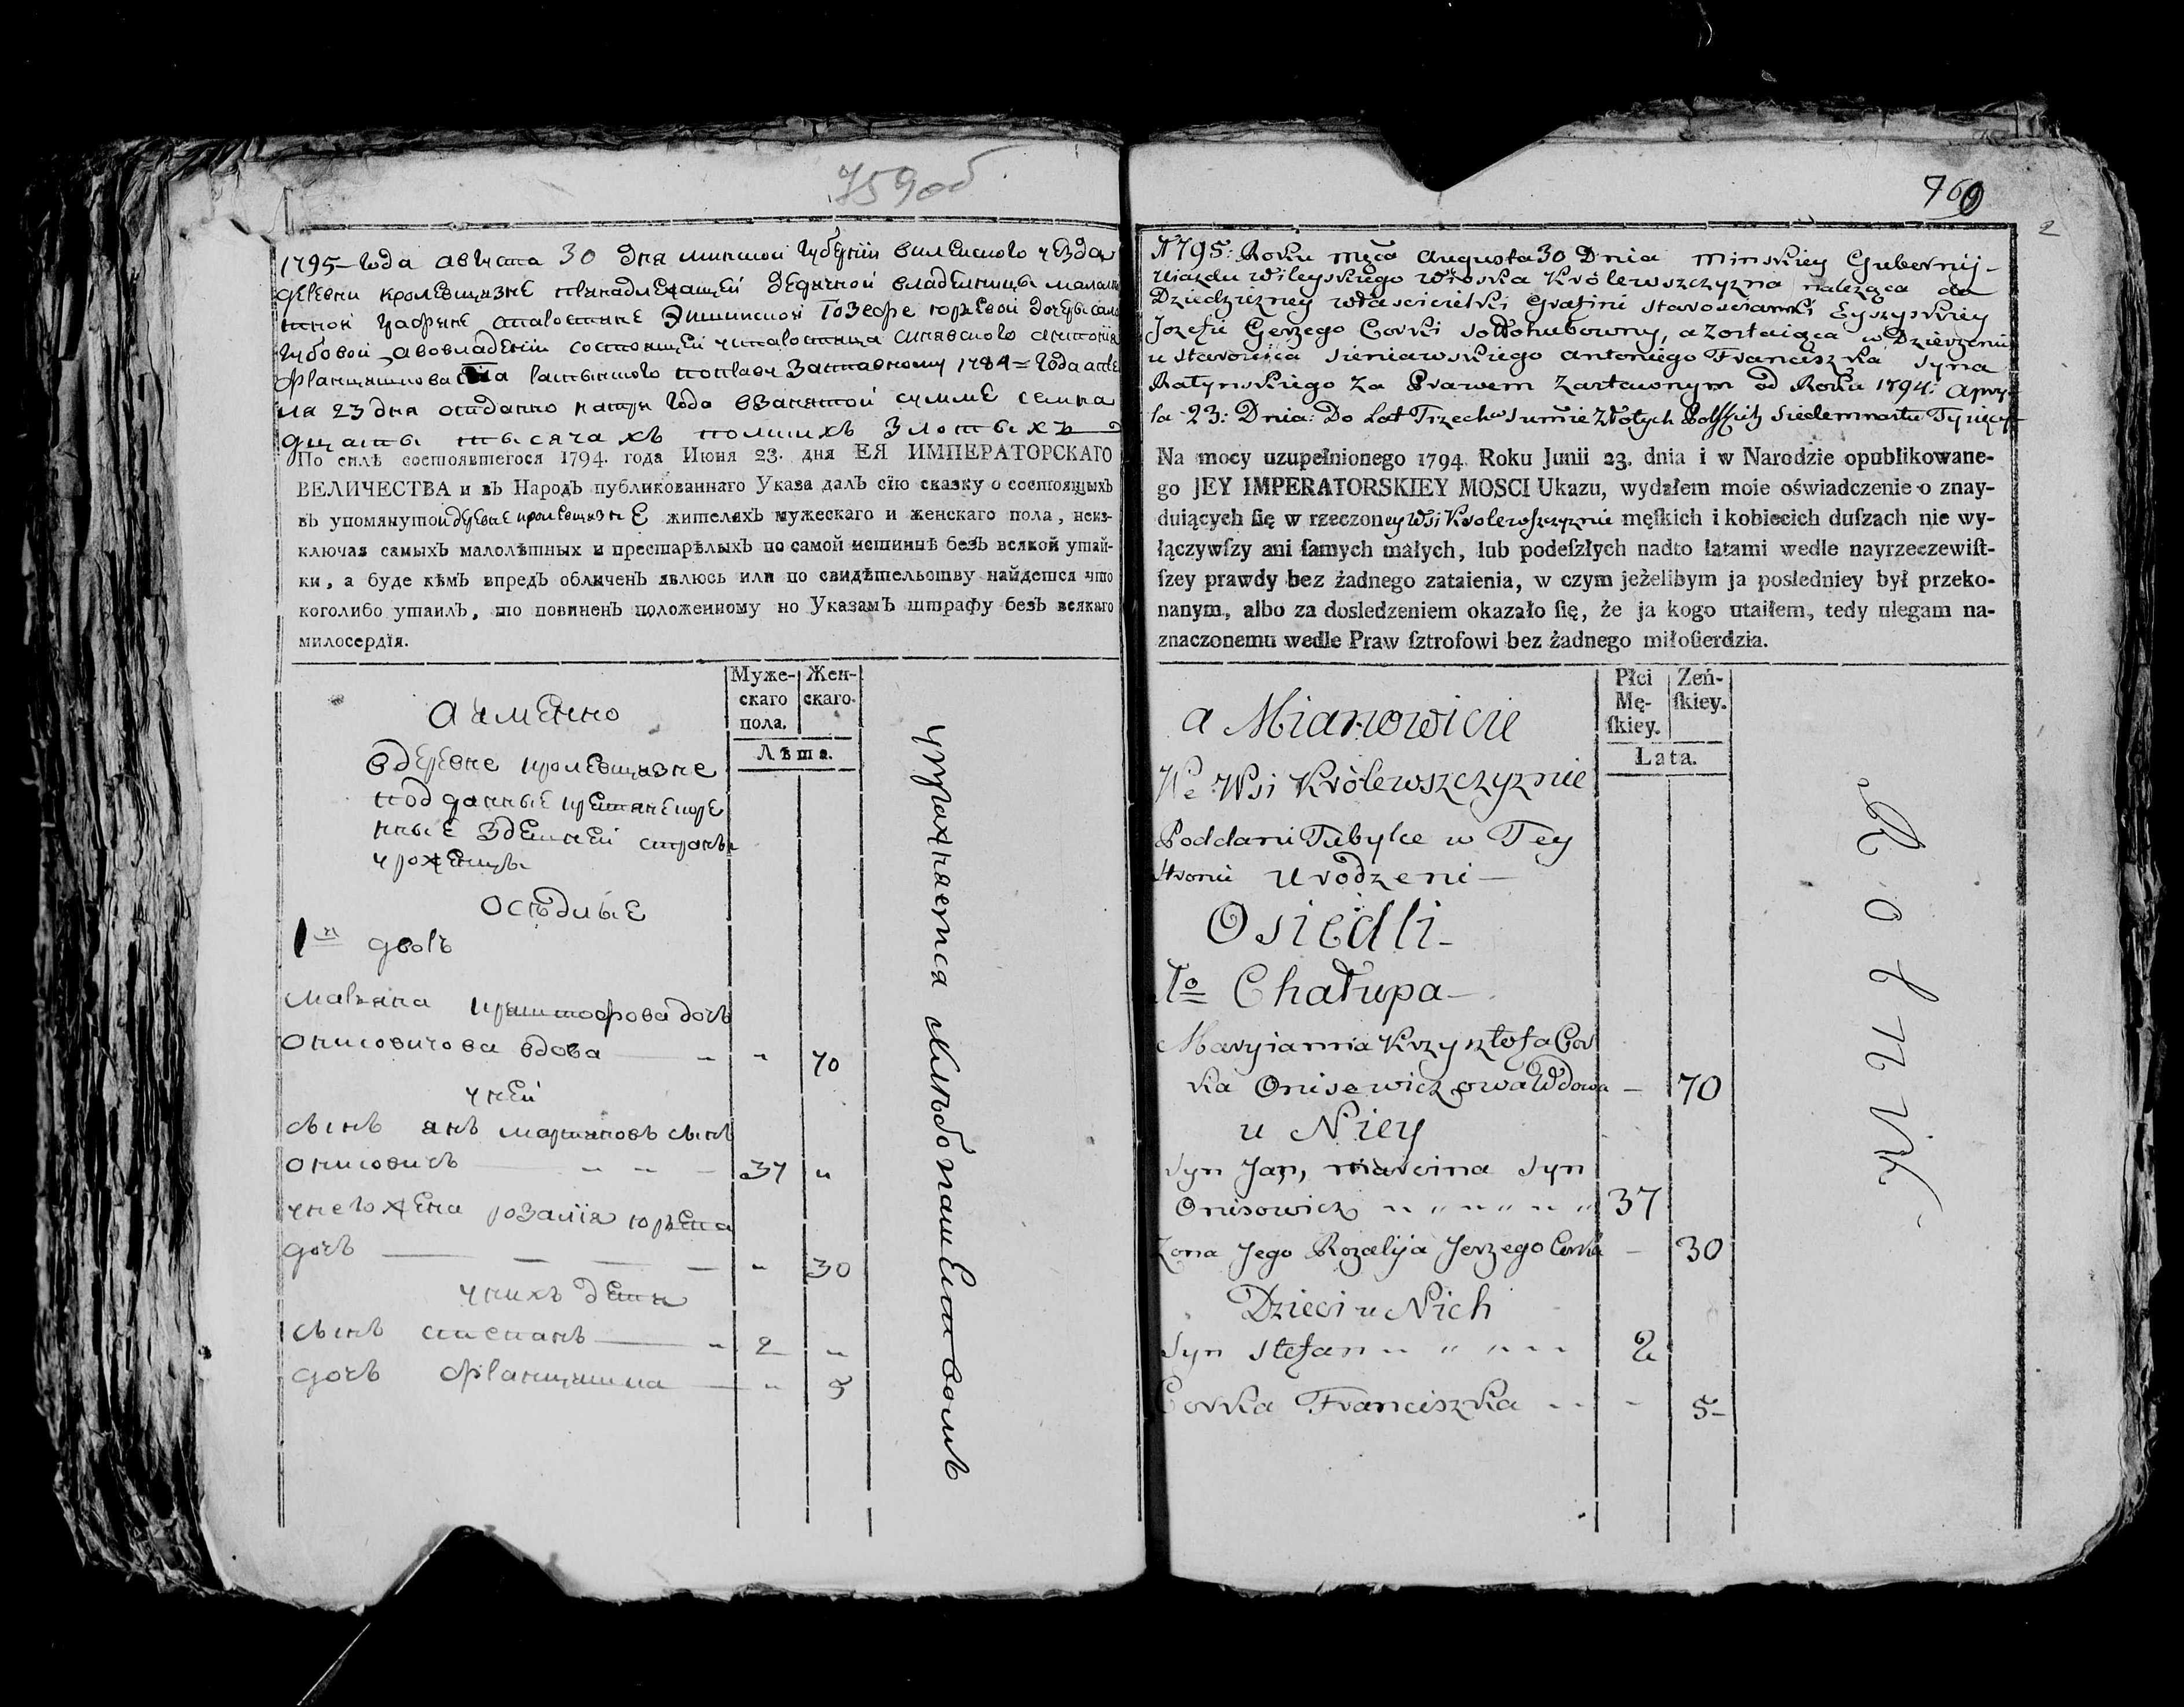 759об
1795 года августа 30 дня минской губернии вилейского уезда
деревни кролевщизне принадлежащей дедичной владелницы
графине старостине Эйшинской Іозефе юрьевой дочери
во владении состоящей у старостица синявского антония
францишкова сына ратынского по праву заставному 1784 года апре
ля 23 дня отданно на три года в занятой сумме семна
дцаты тысячахъ полскихъ злотыхъ
По силѣ состоявшегося 1794. года Июня 23. дня ЕЯ ИМПЕРАТОРСКАГО
ВЕЛИЧЕСТВА и въ Народъ публикованнаго Указа далъ сїю сказку о состоящыхъ
въ упомянутой деревне кролевщизне жителяхъ мужескаго и женскаго пола, неиз-
ключая самыхъ малолѣтныхъ и престарѣлыхъ по самой истиннѣ безъ всякой утай-
ки, а буде кѣмъ впредь обличенъ явлюсь или по свидѣтельству найдется что
коголибо утаилъ, то повиненъ положенному по Указамъ штрафу безъ всякаго
милосердїя.
Муже-
скаго
пола.
Жен-
скаго.
Лѣта.
а имянно
в деревне кролевщизне
подданные крестяне коре
нные здешней стороны
уроженцы
осѣдлые
1й дворъ
марьяна криштофова дочъ
онисовичова вдова " 70
у ней
сынъ янъ мартиновъ сынъ
онисовичъ 37 "
у него жена розалїя юрьева
дочъ " 30
у нихъ дети
сынъ степанъ 2 "
дочъ францишка " 5
упражняется хлѣбопашеством
760
2
1795: Roku męca Augusta 30 Dnia Minskiey Gubernij
Uiazdu Wileyskiego Wioska Królewszczyzna należąca do
Dziedziczney właścicielki Grafini Starościanki Eyszyskiey
Jozefii Gerzego Corki Sołłohubowny, a zostaiąca w Dzierżeniu
u Starościca Sieniawskiego Antoniego Franciszka syna
Ratynskiego za Prawem zastawnym od Roku 1794: Apry
la 23: Dnia: Do Lat Trzech w Summie Złotych Polskich Siedemnastu Tysięcy
Na mocy uzupełnionego 1794. Roku Junii 23. dnia i w Narodzie opublikowane-
go JEY IMPERATORSKIEY MOSCI Ukazu, wydałem moie oświadczenie o znay-
duiących ſię w rzeczoney Wsi Krolewszczyznie męſkich i kobiecich duſzach nie wy-
łączywſzy ani ſamych małych, lub podeſzłych nadto latami wedle nayrzeczewiſt-
ſzey prawdy bez żadnego zataienia, w czym jeżelibym ja posledniey był przeko-
nanym, albo za dosledzeniem okazało ſię, że ja kogo utaiłem, tedy ulegam na-
znaczonemu wedle Praw ſztrofowi bez żadnego miłoſierdzia.
Płci
Mę-
ſkiey.
Zeń-
ſkiey.
Lata.
a Mianowicie
We Wsi Królewszczyznie
Poddani Tubylce w Tey
stronie urodzeni
Osiedli
1o Chałupa
Maryianna Krzysztofa Cor
ka Onisewiczowa Wdowa - 70
u Niey
syn Jan, Marcina syn
Onisowicz 37
Zona Jego Rozalija Jerzego Corka - 30
Dzieci u Nich
Syn Stefan 2
Corka Franciszka - 5